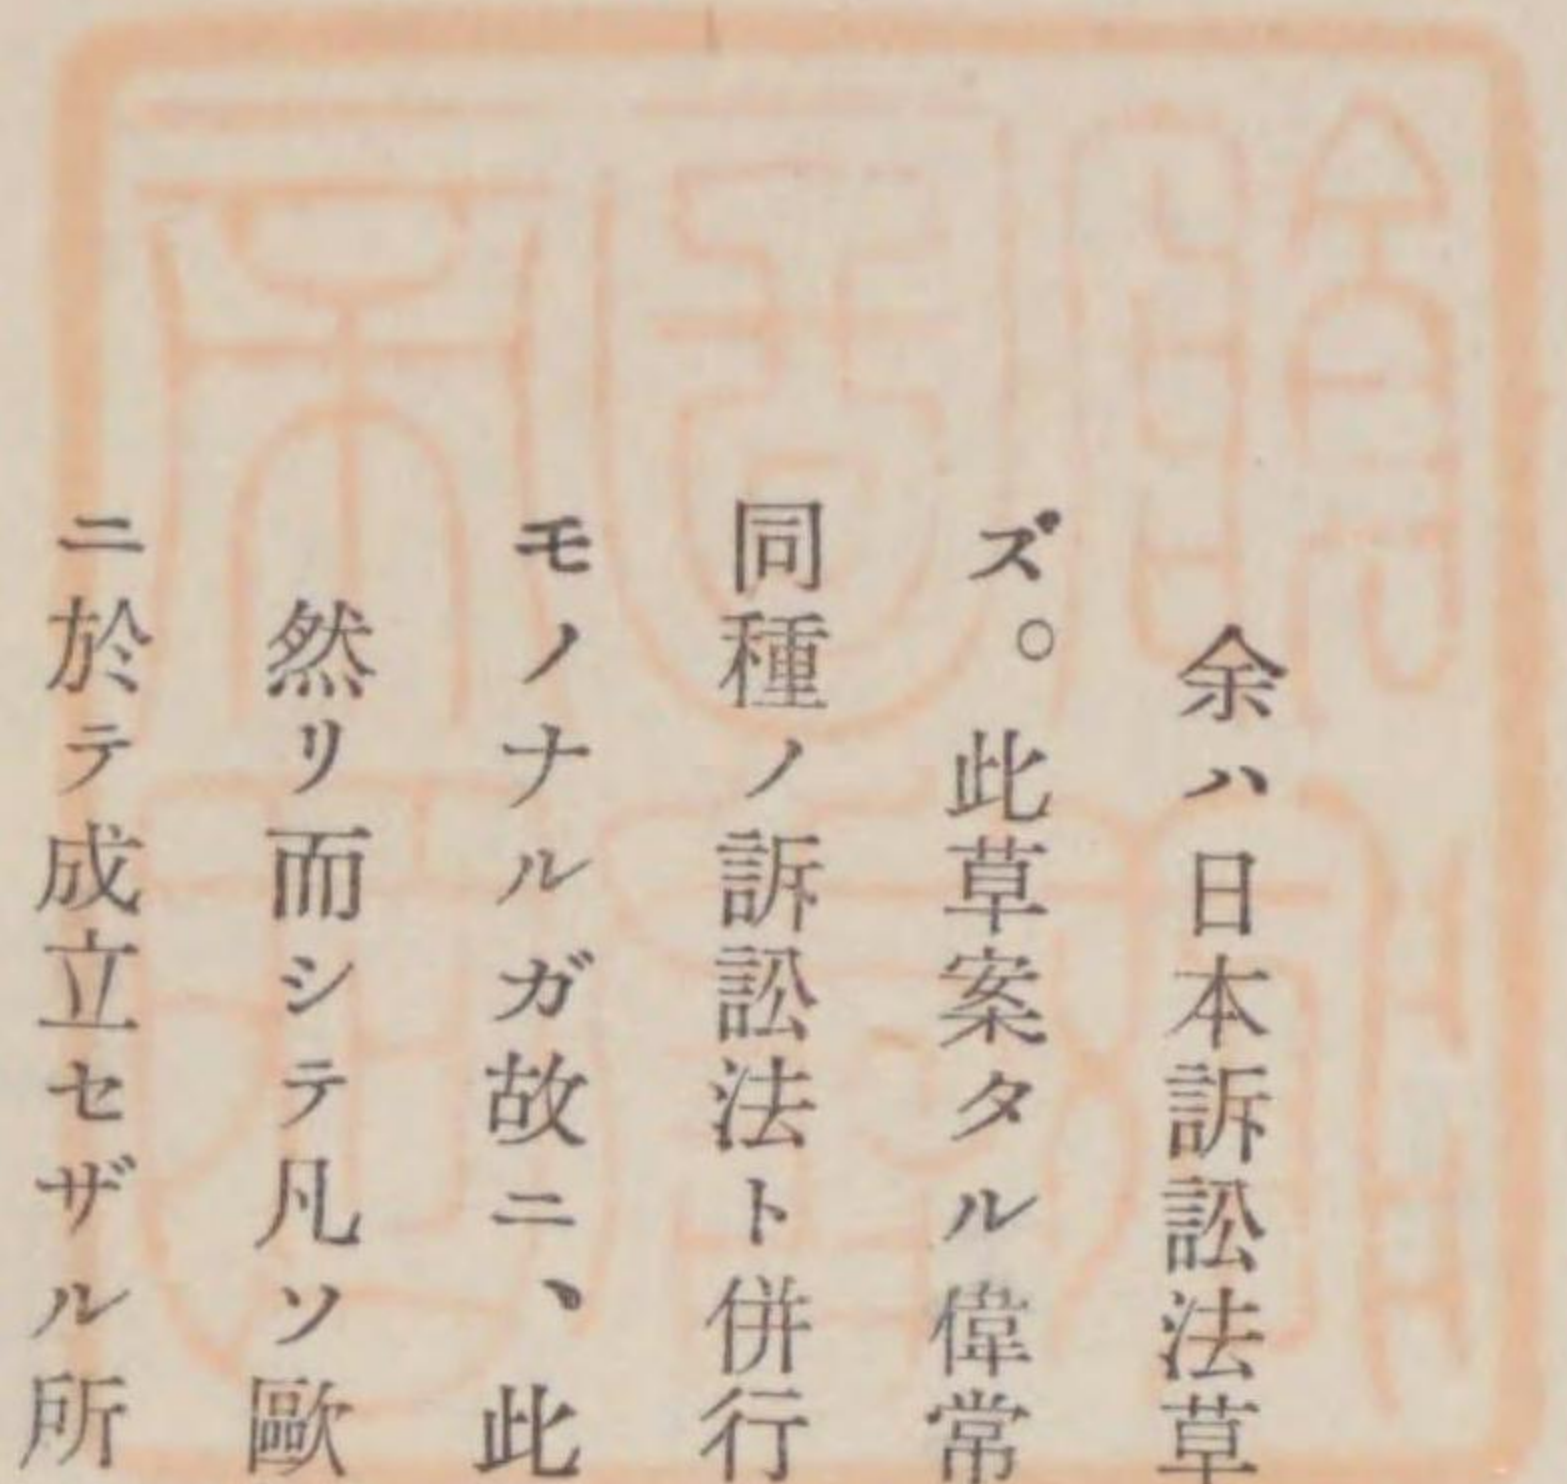 余ハ日本訴訟法草
ズ。此草案タル偉常
同種ノ訴訟法ト併行
モノナルガ故ニ、此
然リ而シテ凡ソ歐
ニ於テ成立セザル所